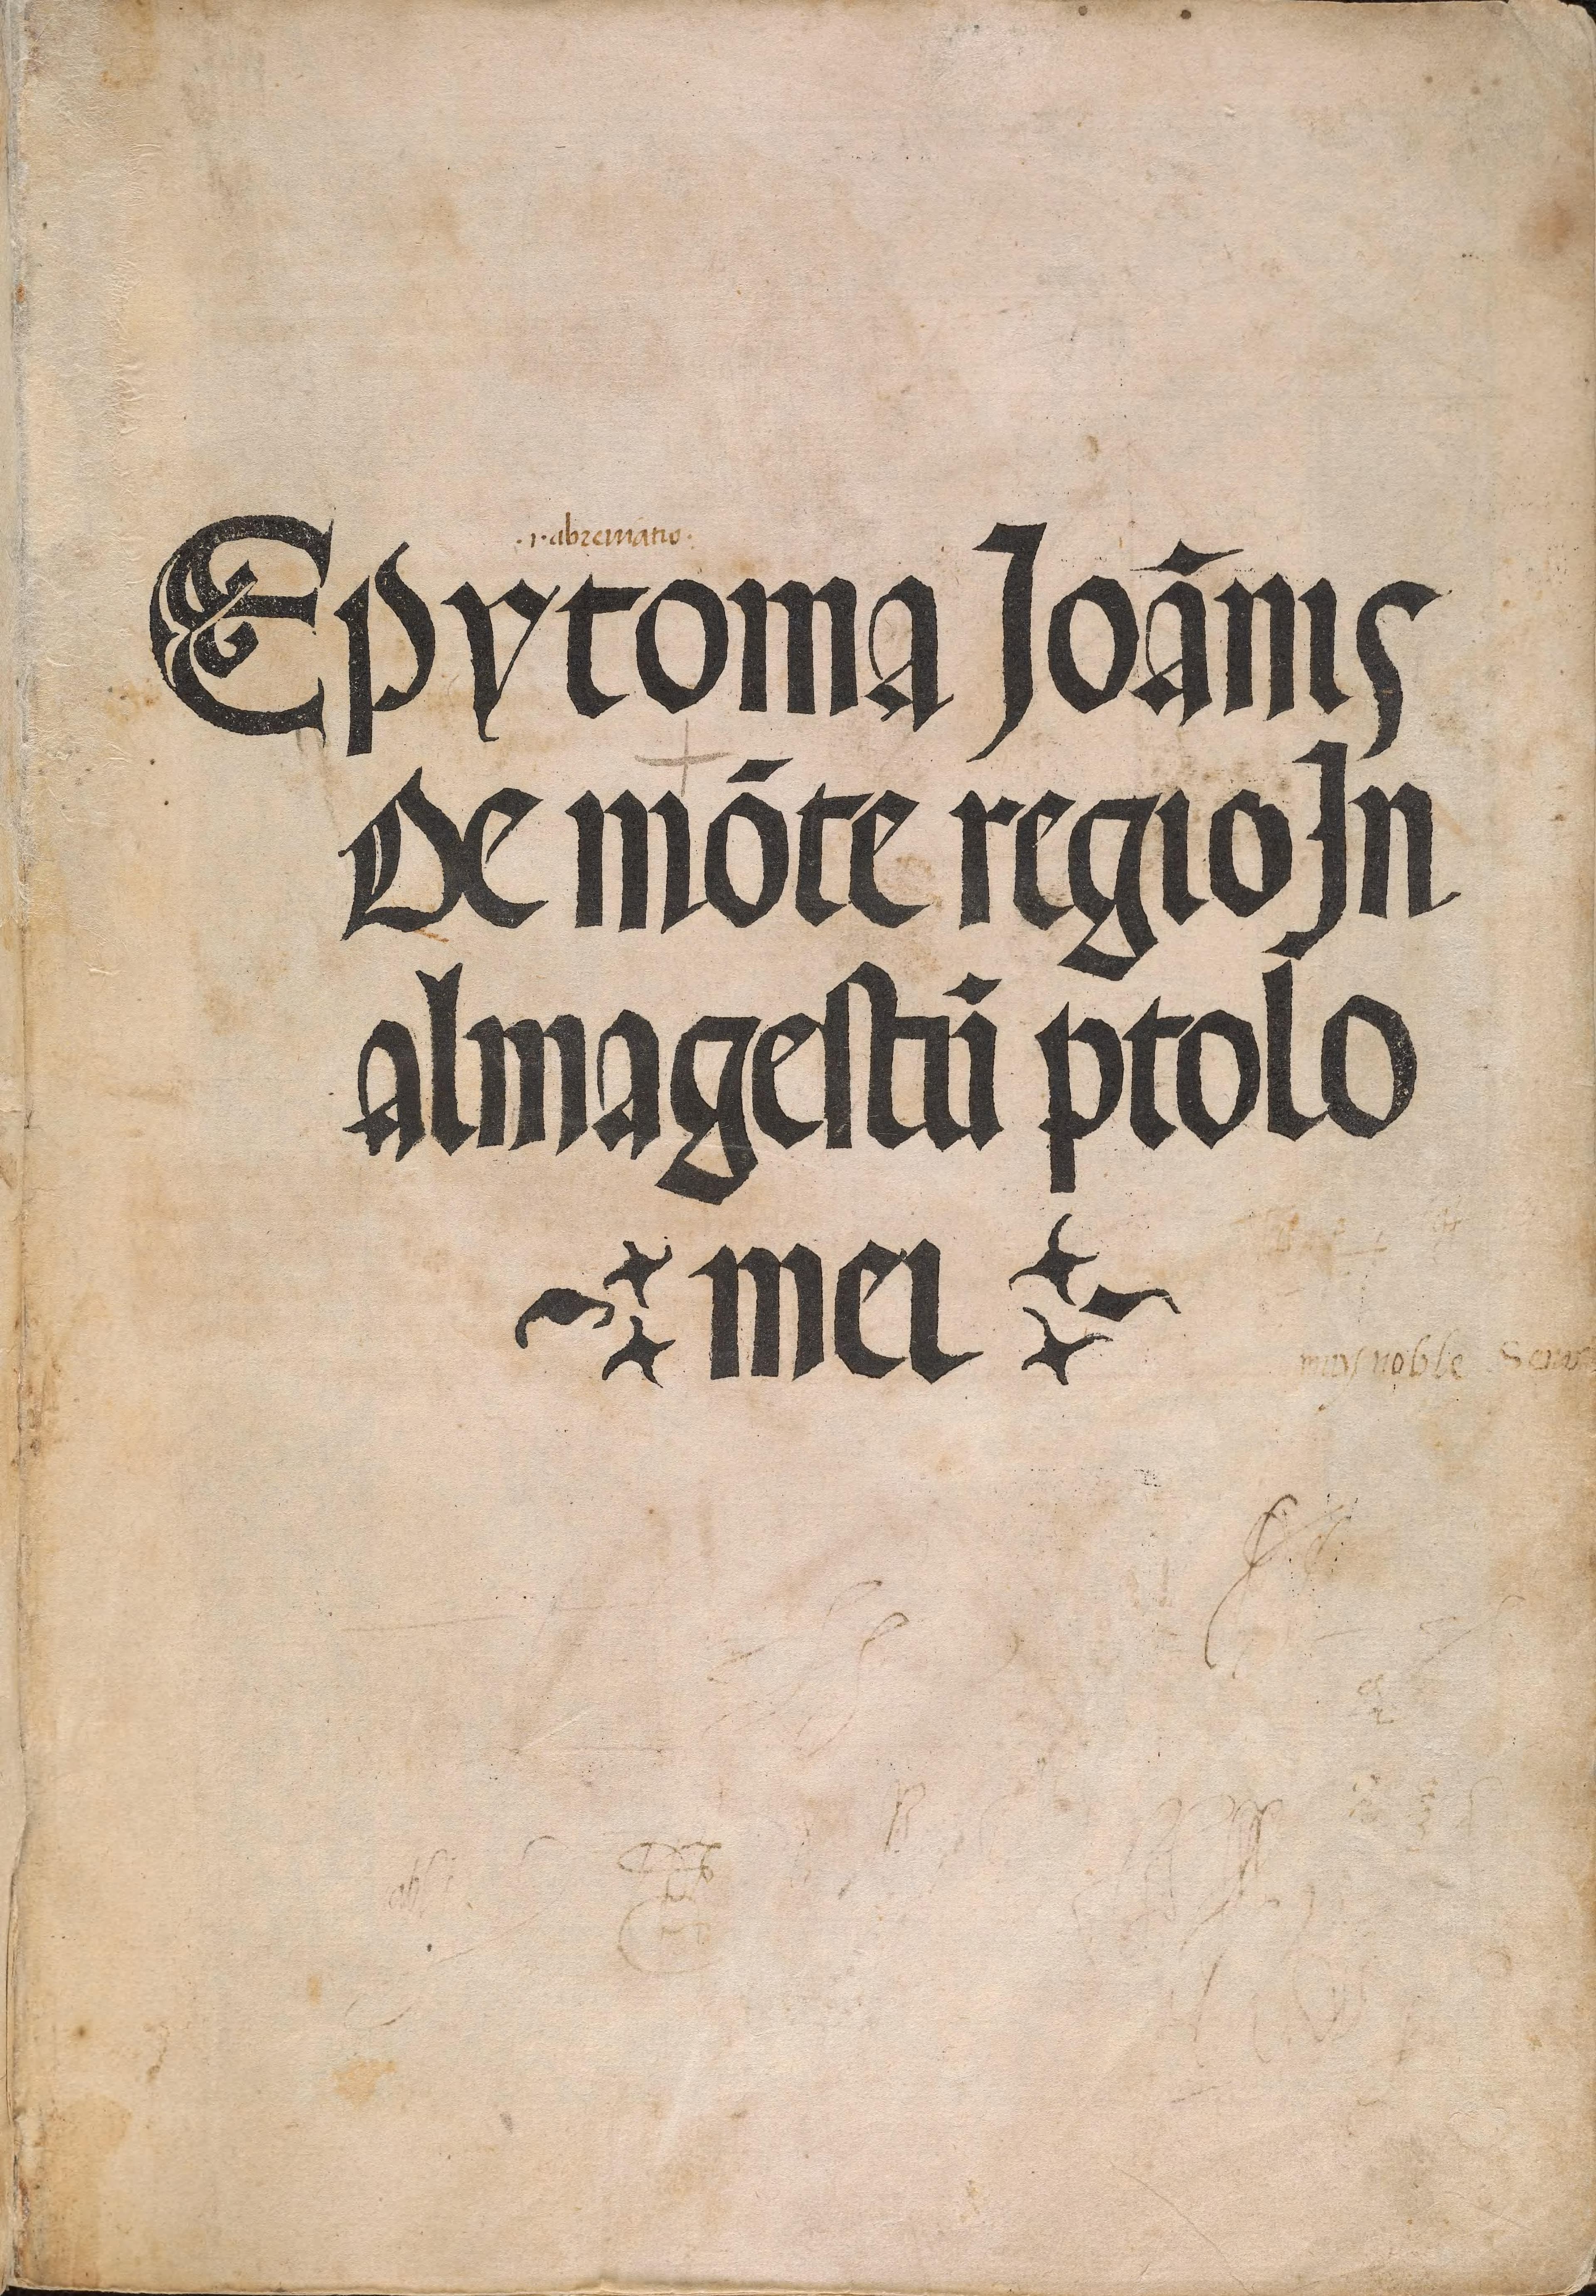 ·i·abreuiatio·
Epytoma Joānis
De mōte regio In
almagestū ptolo
mei
muy noble